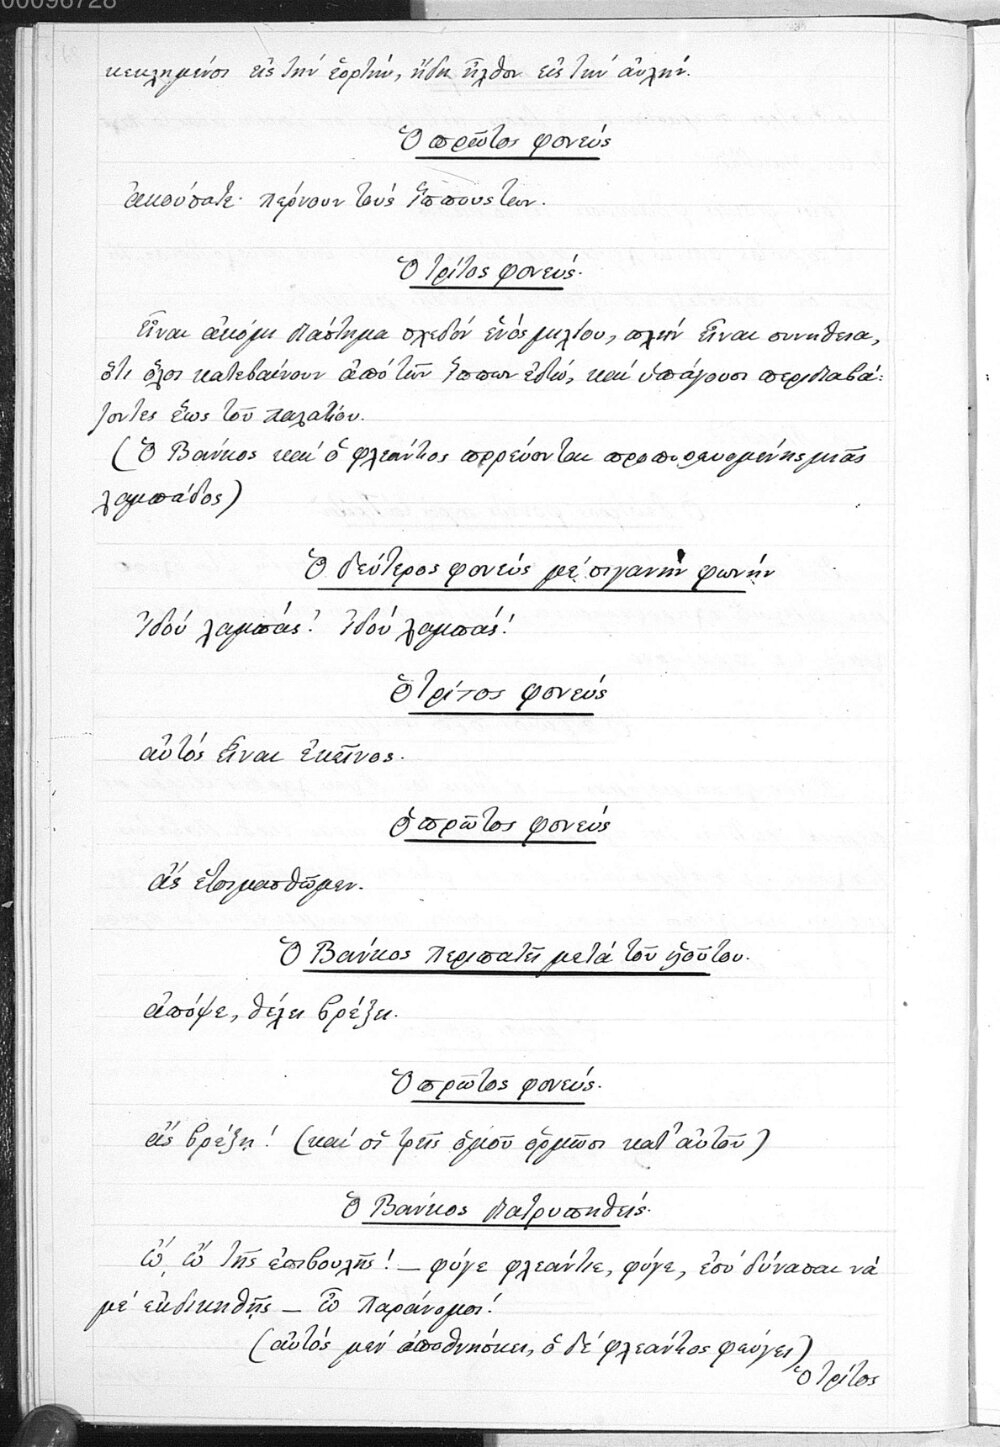 00096728
κεκλημένοι εἰς τὴν ἑορτὴν, ἤδη ἦλθον εἰς τὴν αὐλήν.
Ὁ πρῶτος φονεύς
ἀκούσατε· πέρνουν τοὺς ἵππους των.
Ὁ τρίτος φονεύς.
Εἶναι ἀκόμη διάστημα σχεδὸν ἑνὸς μιλίου, πλὴν εἶναι συνήθεια,
ὅτι ὅλοι κατεβαίνουν ἀπὸ τῶν ἵππων ἐδῶ, καὶ ὑπάγουσι περιδιαβά-
ζοντες ἕως τοῦ παλατίου.
(Ὁ Βάνκος καὶ ὁ φλεάντος πορεύονται προπορευομένης μιᾶς
λαμπάδος)
Ὁ δεύτερος φονεὺς μὲ σιγανὴν φωνήν
Ἰδοὺ λαμπάς! Ἰδοὺ λαμπάς!
Ὁ τρίτος φονεύς
αὐτὸς εἶναι ἐκεῖνος.
Ὁ πρῶτος φονεύς
ἂς ἑτοιμασθῶμεν.
Ὁ Βάνκος περιπατεῖ μετὰ τοῦ υἱοῦ του.
ἀπόψε, θέλει βρέξει.
Ὁ πρῶτος φονεύς.
ἂς βρέξῃ! (καὶ οἱ τρεῖς ὁμοῦ ὁρμῶσι κατ' αὐτοῦ)
Ὁ Βάνκος διατρυπηθείς.
ὢ, ὢ τῆς ἐπιβουλῆς! — φύγε φλεάντε, φύγε, ἐσὺ δύνασαι νὰ
μὲ ἐκδικηθῇς — ὢ παράνομοι!
(αὐτὸς μὲν ἀποθνήσκει, ὁ δὲ φλεάντος φεύγει)
Ὁ τρίτος